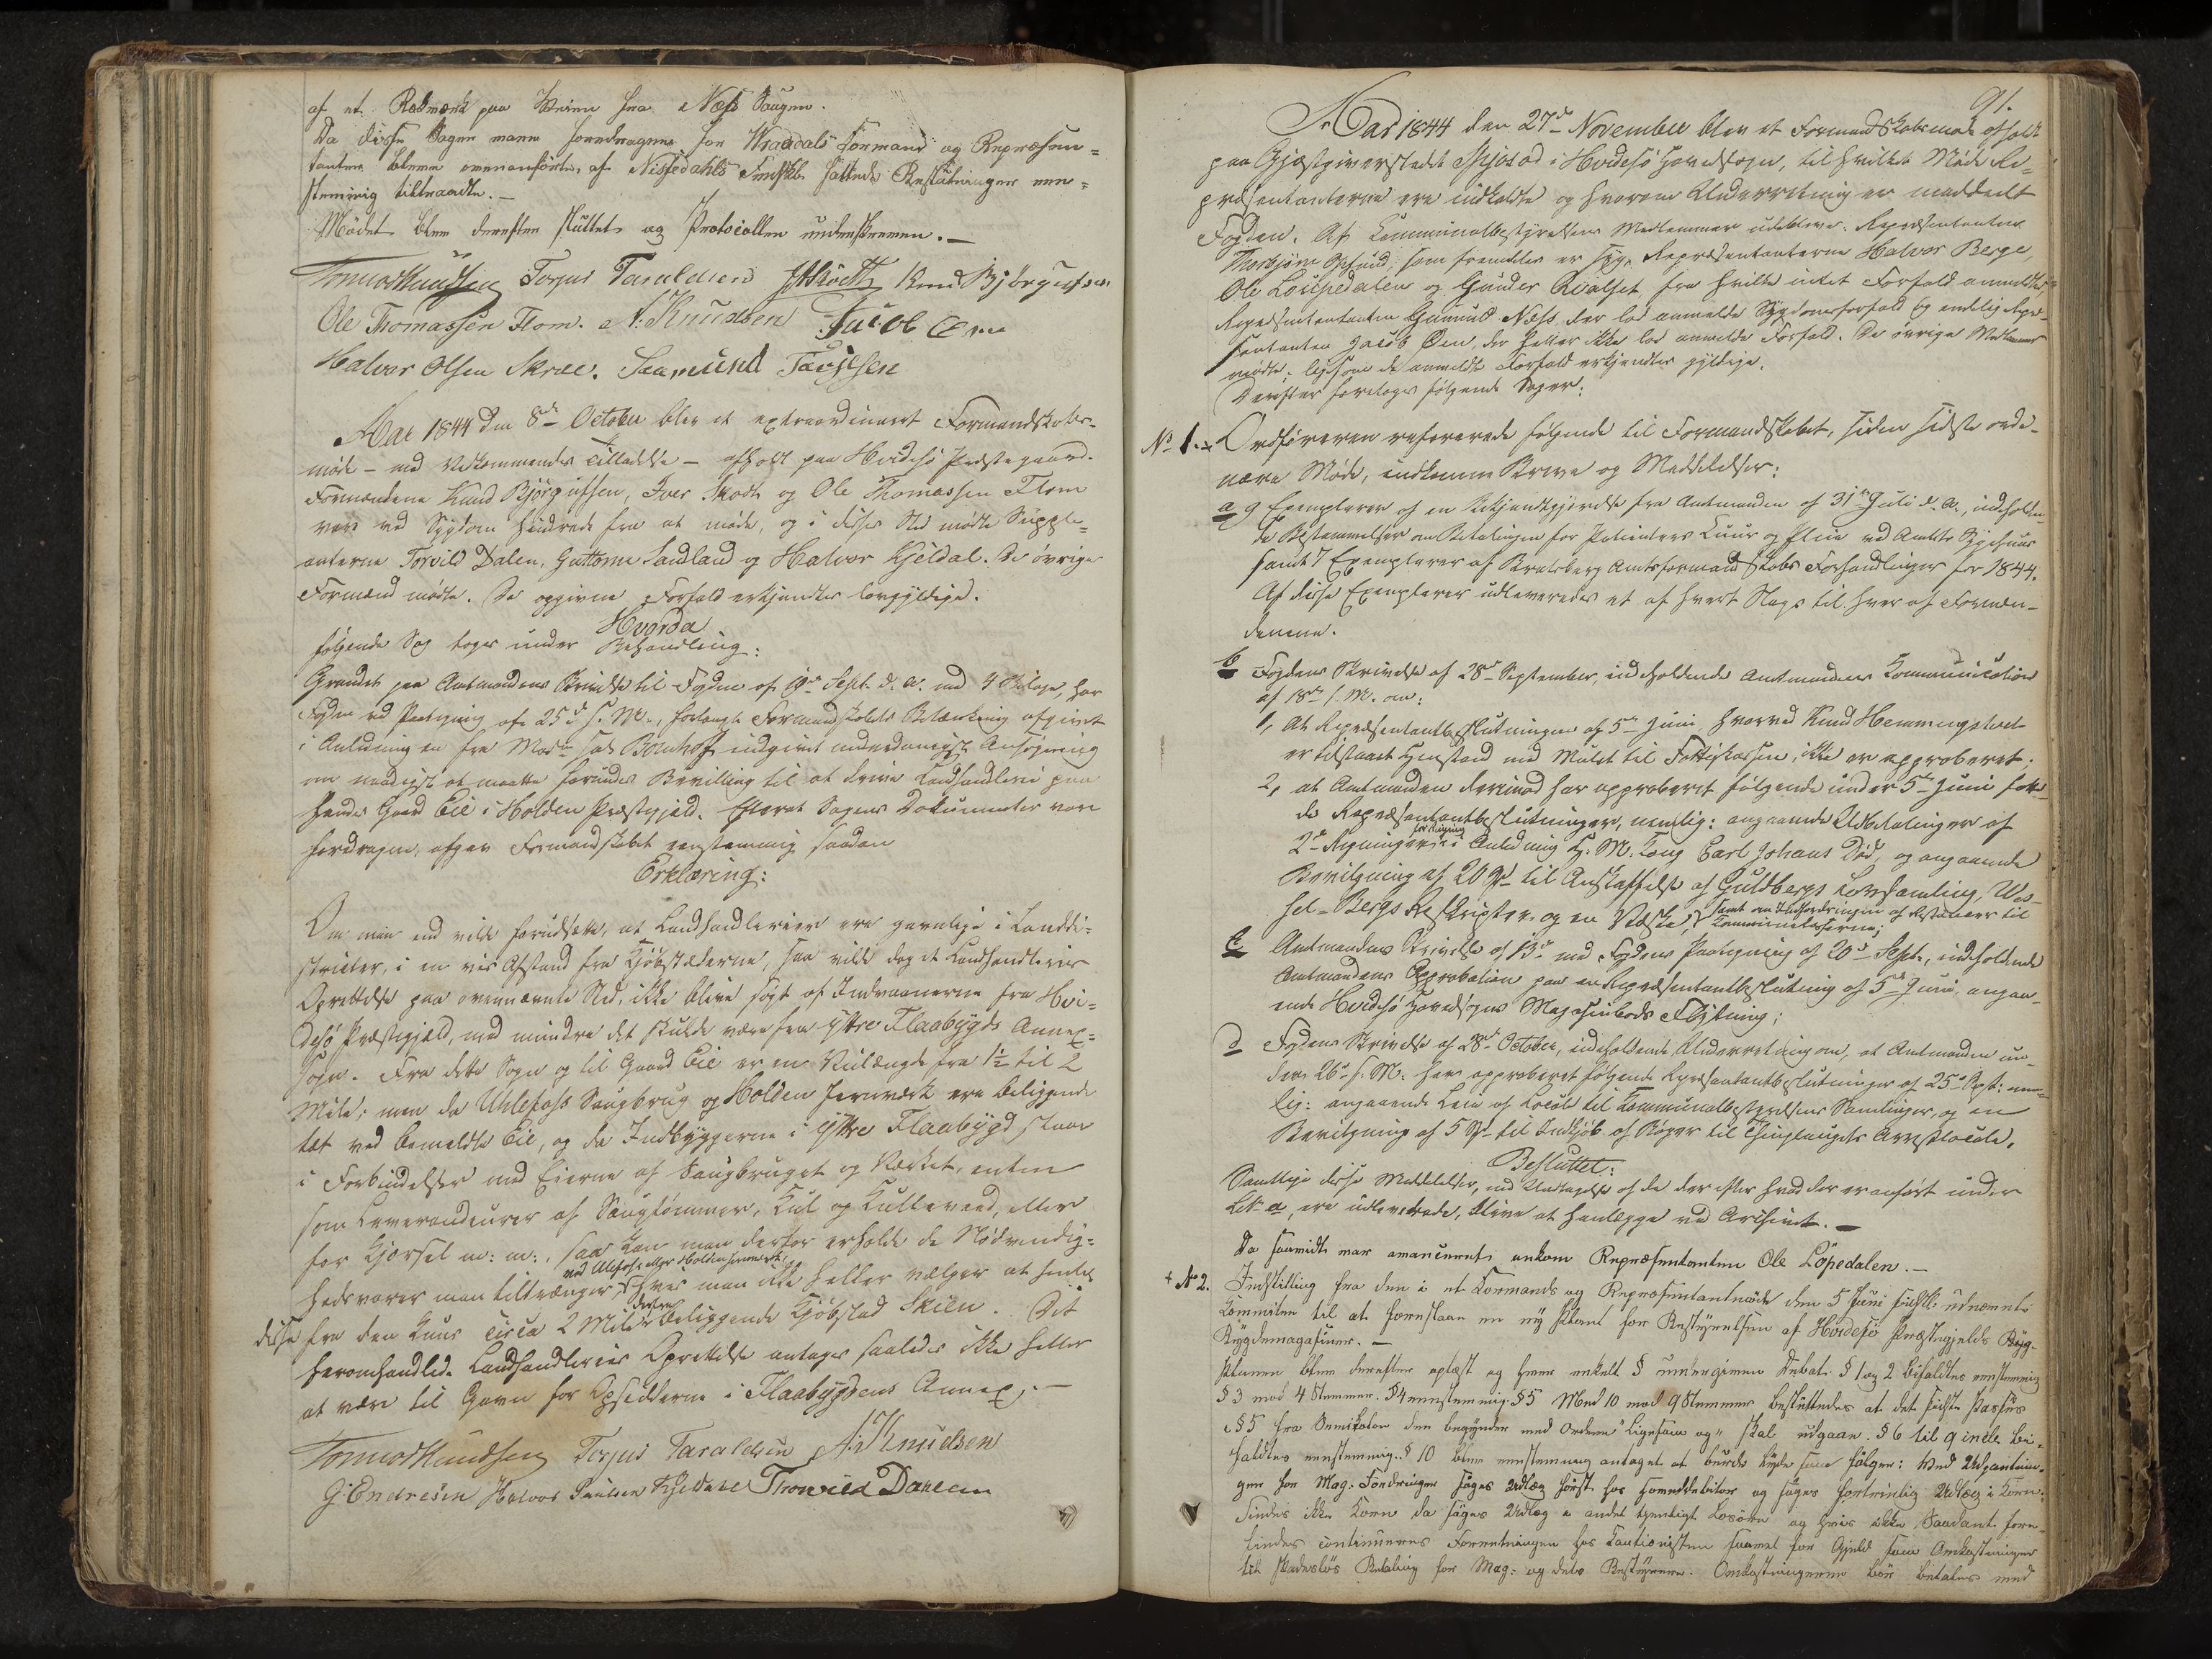 af et Rodemærk paa Veien fra Næss Saugen.
Da disse Sager vare foredragne for Wraadals Formænd og Repræsen=
tanter bleve ovenanførte, af Nissedahls Fmskb. fattede Beslutninger een=
stemmig tiltraadte. —
Mødet blev derefter sluttet og Protocollen underskreven. —
Tormod Knudsen Torjus Taraldsen Knud Bjørgufsen
Ole Thomassen Flom. A: Knudsen Jacob Øen
Halvor Olsen Skree. Saamund Torjussen
Aar 1844 den 8de October blev et extraordinairt Formandskabs-
møde – med Vedkommendes Tilladelse – afholdt paa Hvidesø Præstegaard.
Formændene Knud Bjørgufsen, Iver Skodt og Ole Thomassen Flom
vare ved Sygdom hindrede fra at møde, og i disses Sted mødte Supple=
anterne Torvild Dalen, Guttorm Sandland og Halvor Kjeldal. De øvrige
Formænd mødte. De opgivne Forfald erkjendtes lovgyldige.
Hvorda
følgende Sag toges under Behandling:
Grundet paa Amtmandens Skrivelse til Fogden af Sept. d. A. med 4 Bilage, har
Fogden ved Paategning af 25de s. M., forlangt Formandskabets Betænkning afgivet
i Anledning en fra Bomhoff indgivet underdanigst Ansøgning
om naadigst at maatte forundes Bevilling til at drive Landhandleri paa
hendes Gaard Eie i Holden Præstegjeld. Efterat Sagens Dokumenter vare
foredragne, afgav Formandskabet eenstemmig saadan
Erklæring:
Om man end vilde forudsætte, at Landhandlerier ere gavnlige i Landdi=
strikter, i en vis Afstand fra Kjøbstæderne, saa vilde dog et Landhandleries
Oprettelse paa ovennævnte Sted, ikke blive søgt af Indvaanerne fra Hvi=
desø Præstegjæld, med mindre det skulde være fra Yttre Flaabygds Annex=
sogn. Fra dette Sogn og til Gaard Eie er en Veilængde fra 1½ til 2
Mile; men da Uhlefoss Saugbrug og Holden Jernværk ere beliggende
tæt ved bemeldte Eie, og da Indbyggerne i Yttre Flaabygd staae
i Forbindelser med Eierne af Saugbruget og Værket, enten
som Leverandeurer af Saugtømmer, Kul og Kulleveed, eller
for Kjørsel m: m:, saa kan man derfor erholde de Nødvendig=
ved Ulefoss eller Holden Jernværk
hedsvarer man tiltrænger, hvis man ikke heller vælger at hente
disse fra den kuns circa 2 Mile derfra beliggende Kjøbstad Skien. Det
heromhandlede Landhandleries Oprettelse antages saaledes ikke heller
at være til Gavn for Opsidderne i Flaabygdens Annex. —
Tormod Knudsen Torjus Taraldsen A: Knudsen
G: Endresen Halvor Paulsen Kjeldale Thorvild Dalen
91.
Aar 1844 den 27de November blev et Formandskabsmøde afholdt
paa Gjæstgiverstedet Spjosod i Hvidesø Hovedsogn, til hvilket Møde Re=
præsentanterne ere indkaldte og hvorom Underretning er meddeelt
Fogden. Af Communalbestyrelsens Medlemmer udebleve: Repræsentanten
Thorbjørn Opsund, som fremdeles er syg, Repræsentanterne Halvor Berge,
Ole Loupedalen og Gunder Kvalset, fra hvilke intet Forfald anmeldtes,
Repræsentanten Gunnuld Næss, der lod anmelde Sygdomsforfald og endelig Repræ-
sentanten Jacob Øen, der heller ikke lod anmelde Forfald. De øvrige Medlemmer
mødte, ligesom de anmeldte Forfald erkjendtes gyldige.
Derefter foretoges følgende Sager:
No 1. Ordføreren refererede følgende til Formandskabet, siden sidste ordi-
nære Møde, indkomne Breve og Meddelelser:
a, 9 Exemplarer af en Bekjendtgjørelse fra Amtmanden af 31te Juli d. A., indeholden-
de Bestemmelser om Betalingen for Patienters Kuur og Pleie ved Amtets Sygehuus
samt 7 Exemplarer af Bratsberg Amtsformandskabs Forhandlinger for 1844.
Af disse Exemplarer udleveredes et af hvert Slags til hver af Formæn-
dene.
b Fogdens Skrivelse af 28de September, indeholdende Amtmandens Communication
af 18de s. M. om:
1, At Repræsentantbeslutningen af 5te Juni, hvorved Knud Hemmingstvet
er tilstaaet Henstand med Mulct til Fattigkassen, ikke er approberet;
2, at Amtmanden derimod har approberet følgende under 5te Juni fatte-
de Repræsentantbeslutninger, nemlig: angaaende Udbetalinger af
2de Regninger i Anledning H. M. Kong Carl Johans Død, og angaaende
Bevilgning af 20 Spd til Anskaffelse af Guldbergs Lovsamling, Wes-
sel-Bergs Reskripter, og en Væske, samt om Inddrivningen af Restancer til
Kommunekasserne;
c Amtmandens Skrivelse af 13de med Fogdens Paategning af 20de Sept., indeholdende
Amtmandens Approbation paa en Repræsentantbeslutning af 5te Juni, angaa-
ende Hvidesø Hovedsogns Magasinbods Flytning;
d Fogdens Skrivelse af 28de October, indeholdende Underretning om, at Amtmanden un-
der 26de s. M. har approberet følgende Repræsentantbeslutninger af 25de Sept: nem-
lig: angaaende Leie af Locale til Kommunalbestyrelsens Samlinger, og en
Bevilgning af 5 Spd til Indkjøb af Bøger til Thinglaugets Arrestlocale.
Besluttet:
Samtlige disse Meddelelser, med Undtagelse af de der efter hvad der er anført under
Litr. a, ere udleverede, blive at henlægge ved Archivet. —
Da saavidt var avanceret ankom Repræsentanten Ole Löpedalen. —
+ No 2. Indstilling fra den i et Formands og Repræsentantmøde den 5 Juni sidstl. udnævnte
Committee til at foreslaae en ny Plan for Bestyrelsen af Hvidesø Præstegjelds Byg-
Bygdemagasiner. —
Planen blev derefter oplæst og hver enkelt § undergiven Debat. § 1 og 2 bifaldtes eenstemmig
§ 3 mod 4 Stemmer. § 4 eenstemmig. § 5 Med 10 mod 9 Stemmer besluttedes at det sidste Passus
i § 5 fra Semikolon den begynder med Ordene "Ligesom og" skal udgaae. § 6 til 9 incle. bi-
faldtes eenstemmig. § 10 blev eenstemmig antaget at burde lyde som følger: Ved Udpantnin-
ger for Mag: Fordringer søges Udlæg først hos Hoveddebitor og søges fortrinlig Udlæg i Korn.
Findes ikke Korn da søges Udlæg i andet tjenligt Løsøre og hvis ikke Saadant fore-
findes continueres Forretningen hos Cautionisten saavel for Gjeld som Omkostninger
til skadesløs Betaling for Mag: og dets Bestyrere. Omkostningerne bør betales med